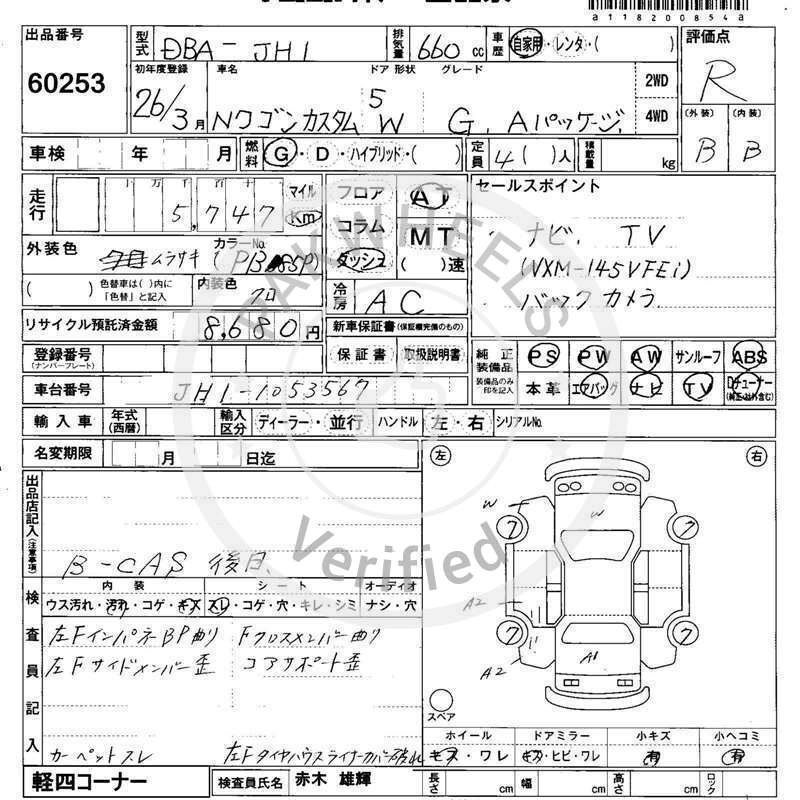 a118200854a
出品番号 型式 DBA-JH1 排気量 660 cc 車歴 自家用・レンタ・( ) 評価点
60253 R
初年度登録 車名 ドア 形状 グレード 2WD
26/3月 Nワゴンカスタム 5 W G, Aパッケージ, 4WD
(外装) (内装)
B B
車検 年 月 燃料 G・D・ハイブリッド・( ) 定員 4( )人 積載量 kg
走行 十万千百十 マイル
5,747 Km
フロア AT
コラム MT
ダッシュ ( )速
セールスポイント
ナビ, TV
(VXM-145VFEi)
バックカメラ
外装色 ムラサキ カラーNo. (PB85P)
( ) 色替車は( )内に「色替」と記入 内装色 クロ
冷房 AC
リサイクル預託済金額 8,680円
新車保証書(保証欄完備のもの)
保証書・取扱説明書
登録番号
(ナンバープレート)
純正装備品 PS PW AW サンルーフ ABS
装備品のみ印を記入 本革 エアバッグ ナビ TV Dチューナー
車台番号 JH1-1053567
輸入車 年式(西暦) 輸入区分 ディーラー・並行 ハンドル 左・右 シリアルNo.
名変期限 月 日迄
左 右
出品店記入(注意事項)
B-CAS 後日
検査員記入
内装 シート オーディオ
ウス汚れ・汚れ・コゲ・キズ スレ・コゲ・穴・キレ・シミ ナシ・穴
左FインパネBP曲り Fクロスメンバー曲り
左Fサイドメンバー歪 コアサポート歪
カーペットスレ 左Fタイヤハウスライナーカバー破れ
W W
7 7
A2
7 7
A2 A1
スペア
ホイール ドアミラー 小キズ 小ヘコミ
キズ・ワレ キズ・ヒビ・ワレ 有 有
軽四コーナー 検査員氏名 赤木 雄輝 長さ cm 幅 cm 高さ cm ロック
PAKWHEELS
Verified